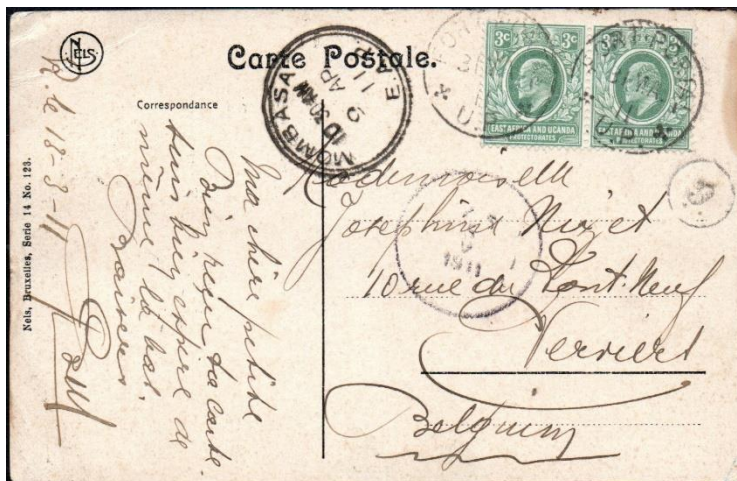 NELS
Carte Postale.
Correspondance
Nels, Bruxelles, Serie 14 No. 123.
MOMBASA
10 30 AM
9 AP
11
3c 3c
EAST AFRICA AND UGANDA
PROTECTORATES
3c
EAST AFRICA AND UGANDA
PROTECTORATES
18-3-11
Ma chère petite
Bien reçu ta carte
suis bien espère de
même là bas.
Baisers
Mademoiselle
Josephine
10 rue du Pont Neuf
Verviers
Belgium